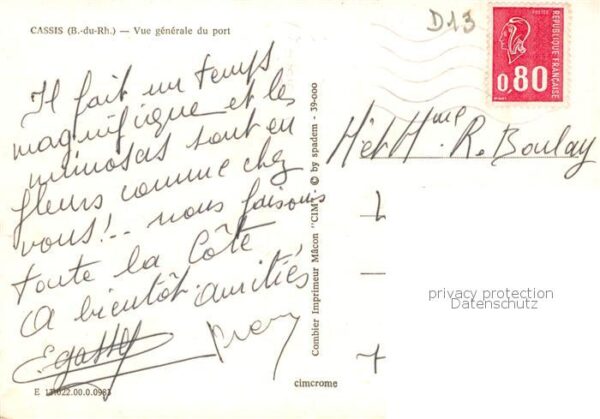 CASSIS (B.-du-Rh.) — Vue générale du port
D13
0,80
POSTES
REPUBLIQUE FRANÇAISE
Il fait un temps
magnifique et les
mimosas sont en
fleurs comme chez
vous!.. nous faisons
toute la Côte
A bientôt. amitiés
M et Mme R. Boulay
Combier Imprimeur Mâcon "CIM" - © by spadem - 39-000
privacy protection
Datenschutz
cimcrome